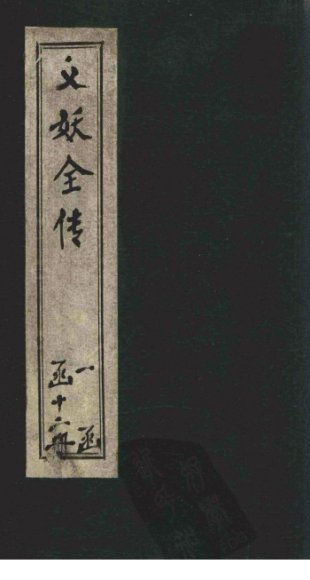 义妖全传
一函
函十二册